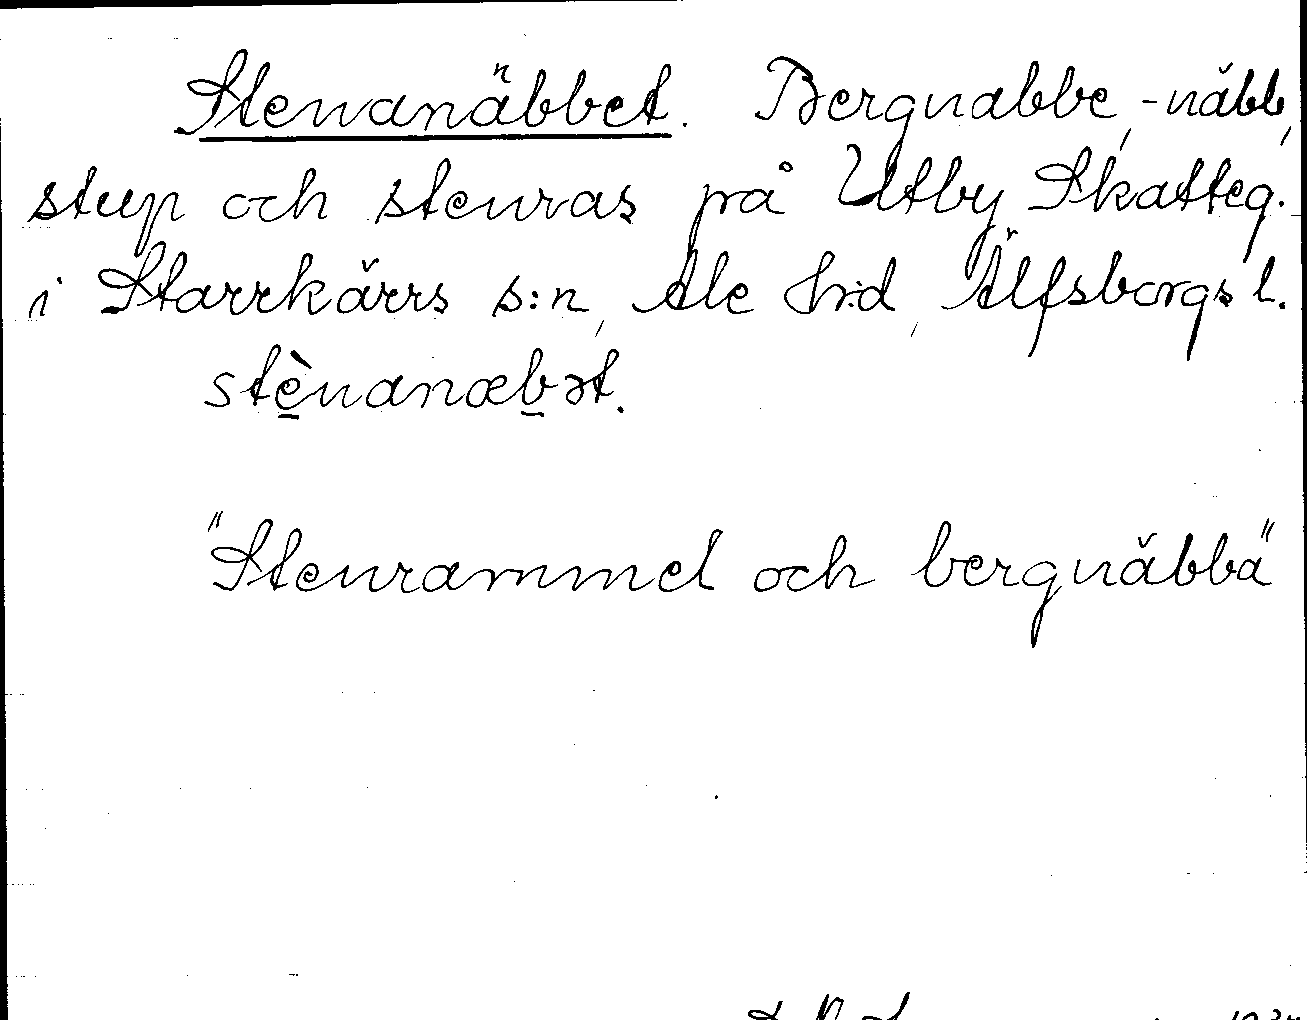 Stenanäbbet. Bergnabbe, -näbb,
stup och stenras på Utby Skatteg.
i Starrkärrs s:n, Ale h:d, Älfsborgs l.
stènanæbət.
"Stenrammel och bergnäbbä"